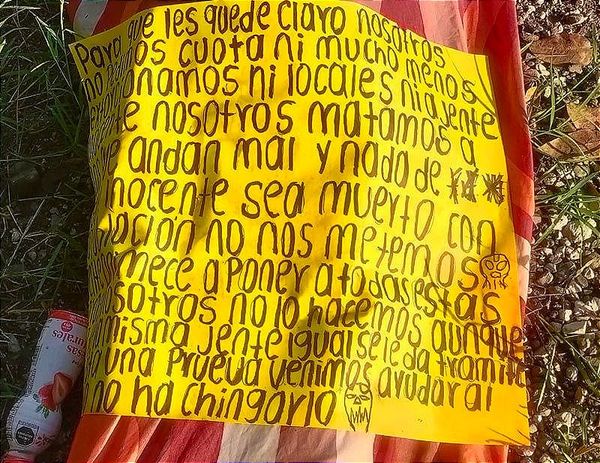 Para que les quede claro nosotros
no cuota ni mucho menos
ni locales ni ajente
nosotros matamos a
andan mal y nada de
sea muerto con
no nos metemos
aponer atodasestas
no lo hacemos aunque
misma jente igual se le da
una prueva venimos ayudar al
no ha chingarlo